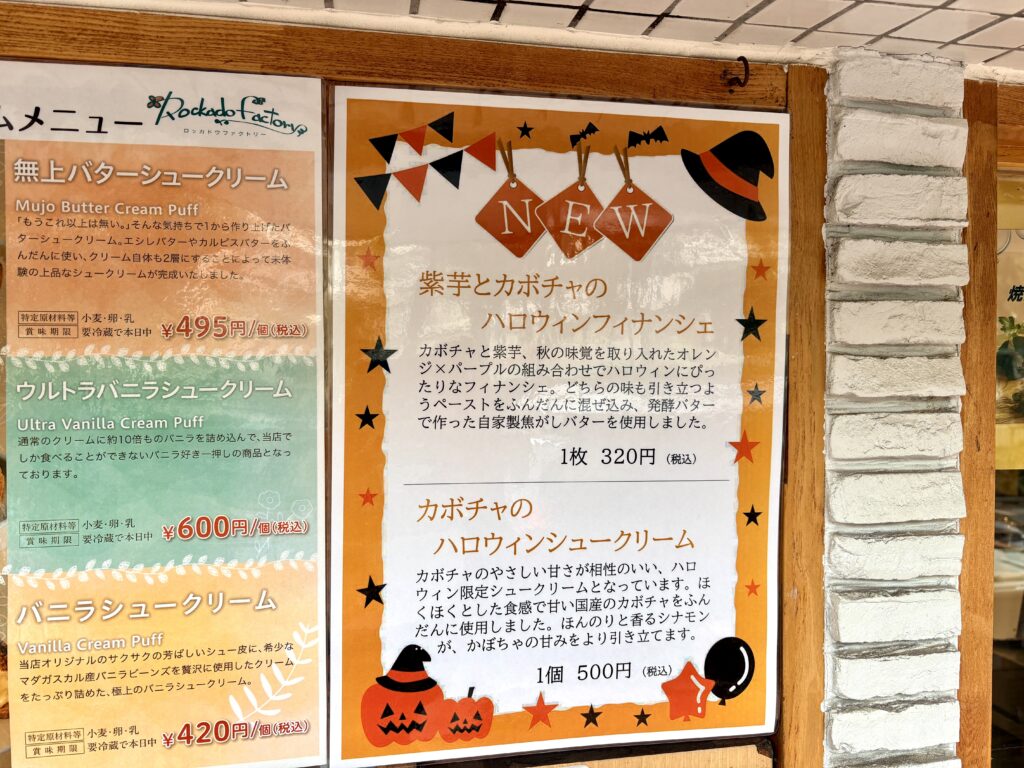 ムメニュー
Rockado factory
ロッカドウファクトリー
無上バターシュークリーム
Mujo Butter Cream Puff
「もうこれ以上は無い。」そんな気持ちで1から作り上げたバ
ターシュークリーム。エシレバターやカルピスバターをふ
んだんに使い、クリーム自体も2層にすることによって未体
験の上品なシュークリームが完成いたしました。
特定原材料等 小麦・卵・乳
賞味期限 要冷蔵で本日中
¥495円/個(税込)
ウルトラバニラシュークリーム
Ultra Vanilla Cream Puff
通常のクリームに約10倍ものバニラを詰め込んで、当店で
しか食べることができないバニラ好き一押しの商品となっ
ております。
特定原材料等 小麦・卵・乳
賞味期限 要冷蔵で本日中
¥600円/個(税込)
バニラシュークリーム
Vanilla Cream Puff
当店オリジナルのサクサクの芳ばしいシュー皮に、希少な
マダガスカル産バニラビーンズを贅沢に使用したクリーム
をたっぷり詰めた、極上のバニラシュークリーム。
特定原材料等 小麦・卵・乳
賞味期限 要冷蔵で本日中
¥420円/個(税込)
NEW
紫芋とカボチャの
ハロウィンフィナンシェ
カボチャと紫芋、秋の味覚を取り入れたオレン
ジ×パープルの組み合わせでハロウィンにぴっ
たりなフィナンシェ。どちらの味も引き立つよ
うペーストをふんだんに混ぜ込み、発酵バター
で作った自家製焦がしバターを使用しました。
1枚 320円 (税込)
カボチャの
ハロウィンシュークリーム
カボチャのやさしい甘さが相性のいい、ハロ
ウィン限定シュークリームとなっています。ほ
くほくとした食感で甘い国産のカボチャをふん
だんに使用しました。ほんのりと香るシナモン
が、かぼちゃの甘みをより引き立てます。
1個 500円 (税込)
焼